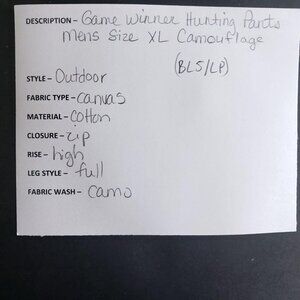 DESCRIPTION – Game Winner Hunting Pants
Mens Size XL Camouflage
(BLS/LP)
STYLE – Outdoor
FABRIC TYPE – Canvas
MATERIAL – Cotton
CLOSURE – Zip
RISE – high
LEG STYLE – full
FABRIC WASH – Camo